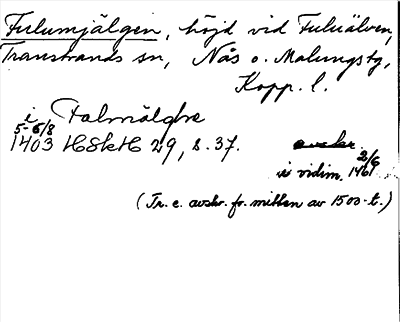 Fulumjälgen, höjd vid Fuluälven,
Transtrands sn, Nås o. Malungs tg,
Kopp. l.
i Falmiælghe
5-6/8
1403 HSkH 29, s. 37. avskr.
i vidim. 2/6 1461
(Tr. e. avskr. fr. mitten av 1500-t.)